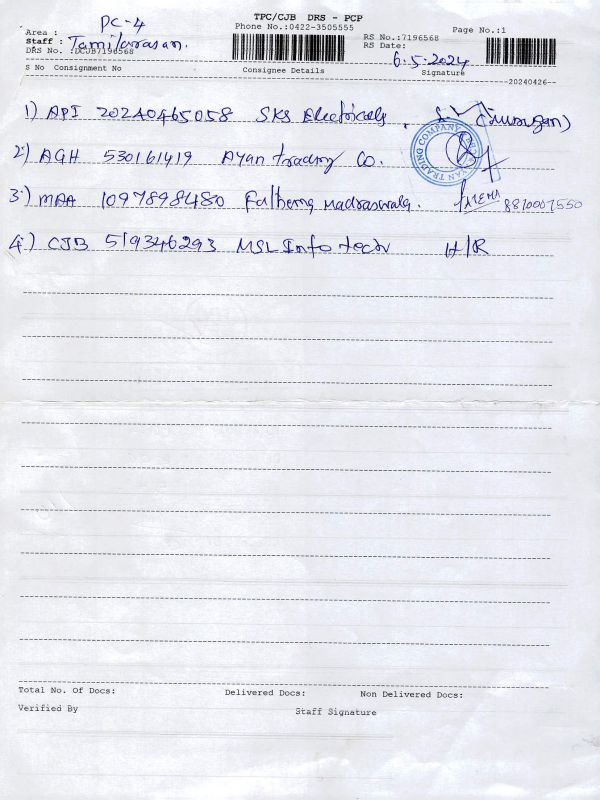 TPC/CJB DRS - PCP
PC-4
Phone No.:0422-3505555
Page No.:1
Area :
RS No.:7196568
Staff : Tamilarasan.
RS Date: 6.5.2024
DRS No. :DCJB7196568
S No Consignment No Consignee Details Signature
--20240426--
1) API 20240465058 SKS Electricals. (Murugan)
2) AGH 530161419 Ayan trading Co.
TRADING COMPANY
3) MAA 1097898480 Madraswala. 8870007550
4.) CJB 519346293 MSL Info tech H/R
Total No. Of Docs: Delivered Docs: Non Delivered Docs:
Verified By Staff Signature